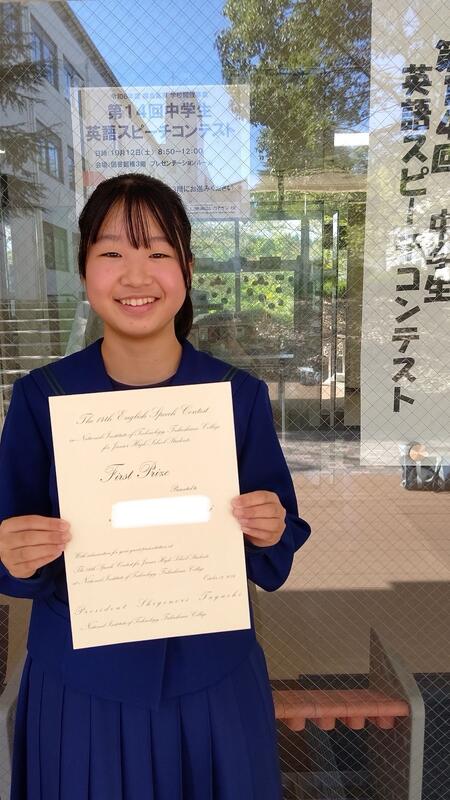 第14回中学生
英語スピーチコンテスト
日時:10月12日(土) 8:50~12:00
会場:図書館棟3階 プレゼンテーションルー
3階にお進みください
第14回 中学生
英語スピーチコンテスト
The 14th English Speech Contest
National Institute of Technology, Fukushima College
for Junior High School Students
First Prize
Presented to
With admiration for your great presentation at
The 14th Speech Contest for Junior High School Students
at National Institute of Technology, Fukushima College
October 12, 2024
President Shigenori Taguchi
National Institute of Technology, Fukushima College